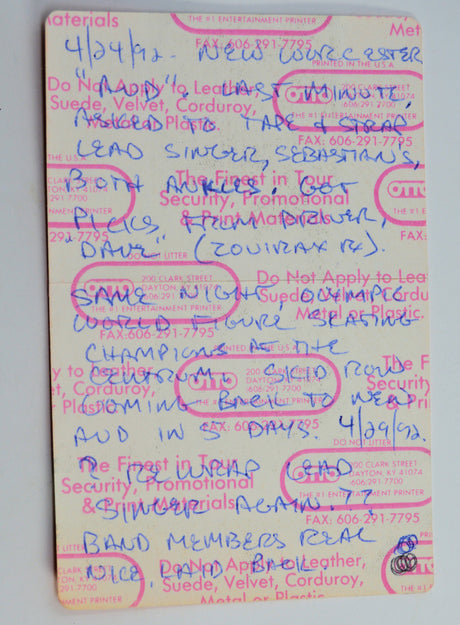 aterials
THE #1 ENTERTAINMENT PRINTER
Met
FAX: 606-291-7795
4/24/92. NEW WORCESTER
PRINTED IN THE U.S.A.
Do Not Apply to Leather,
"AUD". LAST MINUTE,
OTTO
200 CLARK STREET
41074
606-291-7700
Suede, Velvet, Corduroy,
ASKED TO TAPE & STRAP
THE #1 ENTERTAINMENT PRINTER
Metal or Plastic.
FAX: 606-291-7795
LEAD SINGER, SEBASTIAN'S,
THE U.S.A.
The Finest in Tour
BOTH ANKLES. GOT
OTTO
Security, Promotional
PICKS FROM DRIVER,
& Print Materials
"DAVE" (ZOVIRAX RX).
FAX:
DO NOT LITTER
OTTO
200 CLARK STREET
DAYTON, KY 41074
606-291-7700
Do Not Apply to Lea
SAME NIGHT, OLYMPIC
THE #1 ENTERTAINMENT PRINTER
Suede, Velvet, Cordu
WORLD FIGURE SKATING
Metal or Plastic.
FAX: 606-291-7795
CHAMPIONS AT THE
PRINTED IN THE U.S.A.
y to Leather,
The F
CENTRUM. SKID ROW
OTTO
200 CLARK STREET
et, Corduroy,
Securit
COMING BACK TO NEW
THE #1 ENTERTAINMENT PRINTER
Plastic.
& Pri
FAX: 606-291-7795
AUD IN 5 DAYS. 4/29/92.
DO NOT LITTER
The Finest in Tour
? TO WRAP LEAD
200 CLARK STREET
DAYTON, KY 41074
606-291-7700
Security, Promotional
SINGER AGAIN.??
THE #1 ENTERTAINMENT PRINTER
& Print Materials
FAX: 606-291-7795
BAND MEMBERS REAL
Do Not Apply to Leather,
NICE. LAID BACK
Suede, Velvet, Corduroy,
ENTERTAINMENT PRINTER
Metal or Plastic